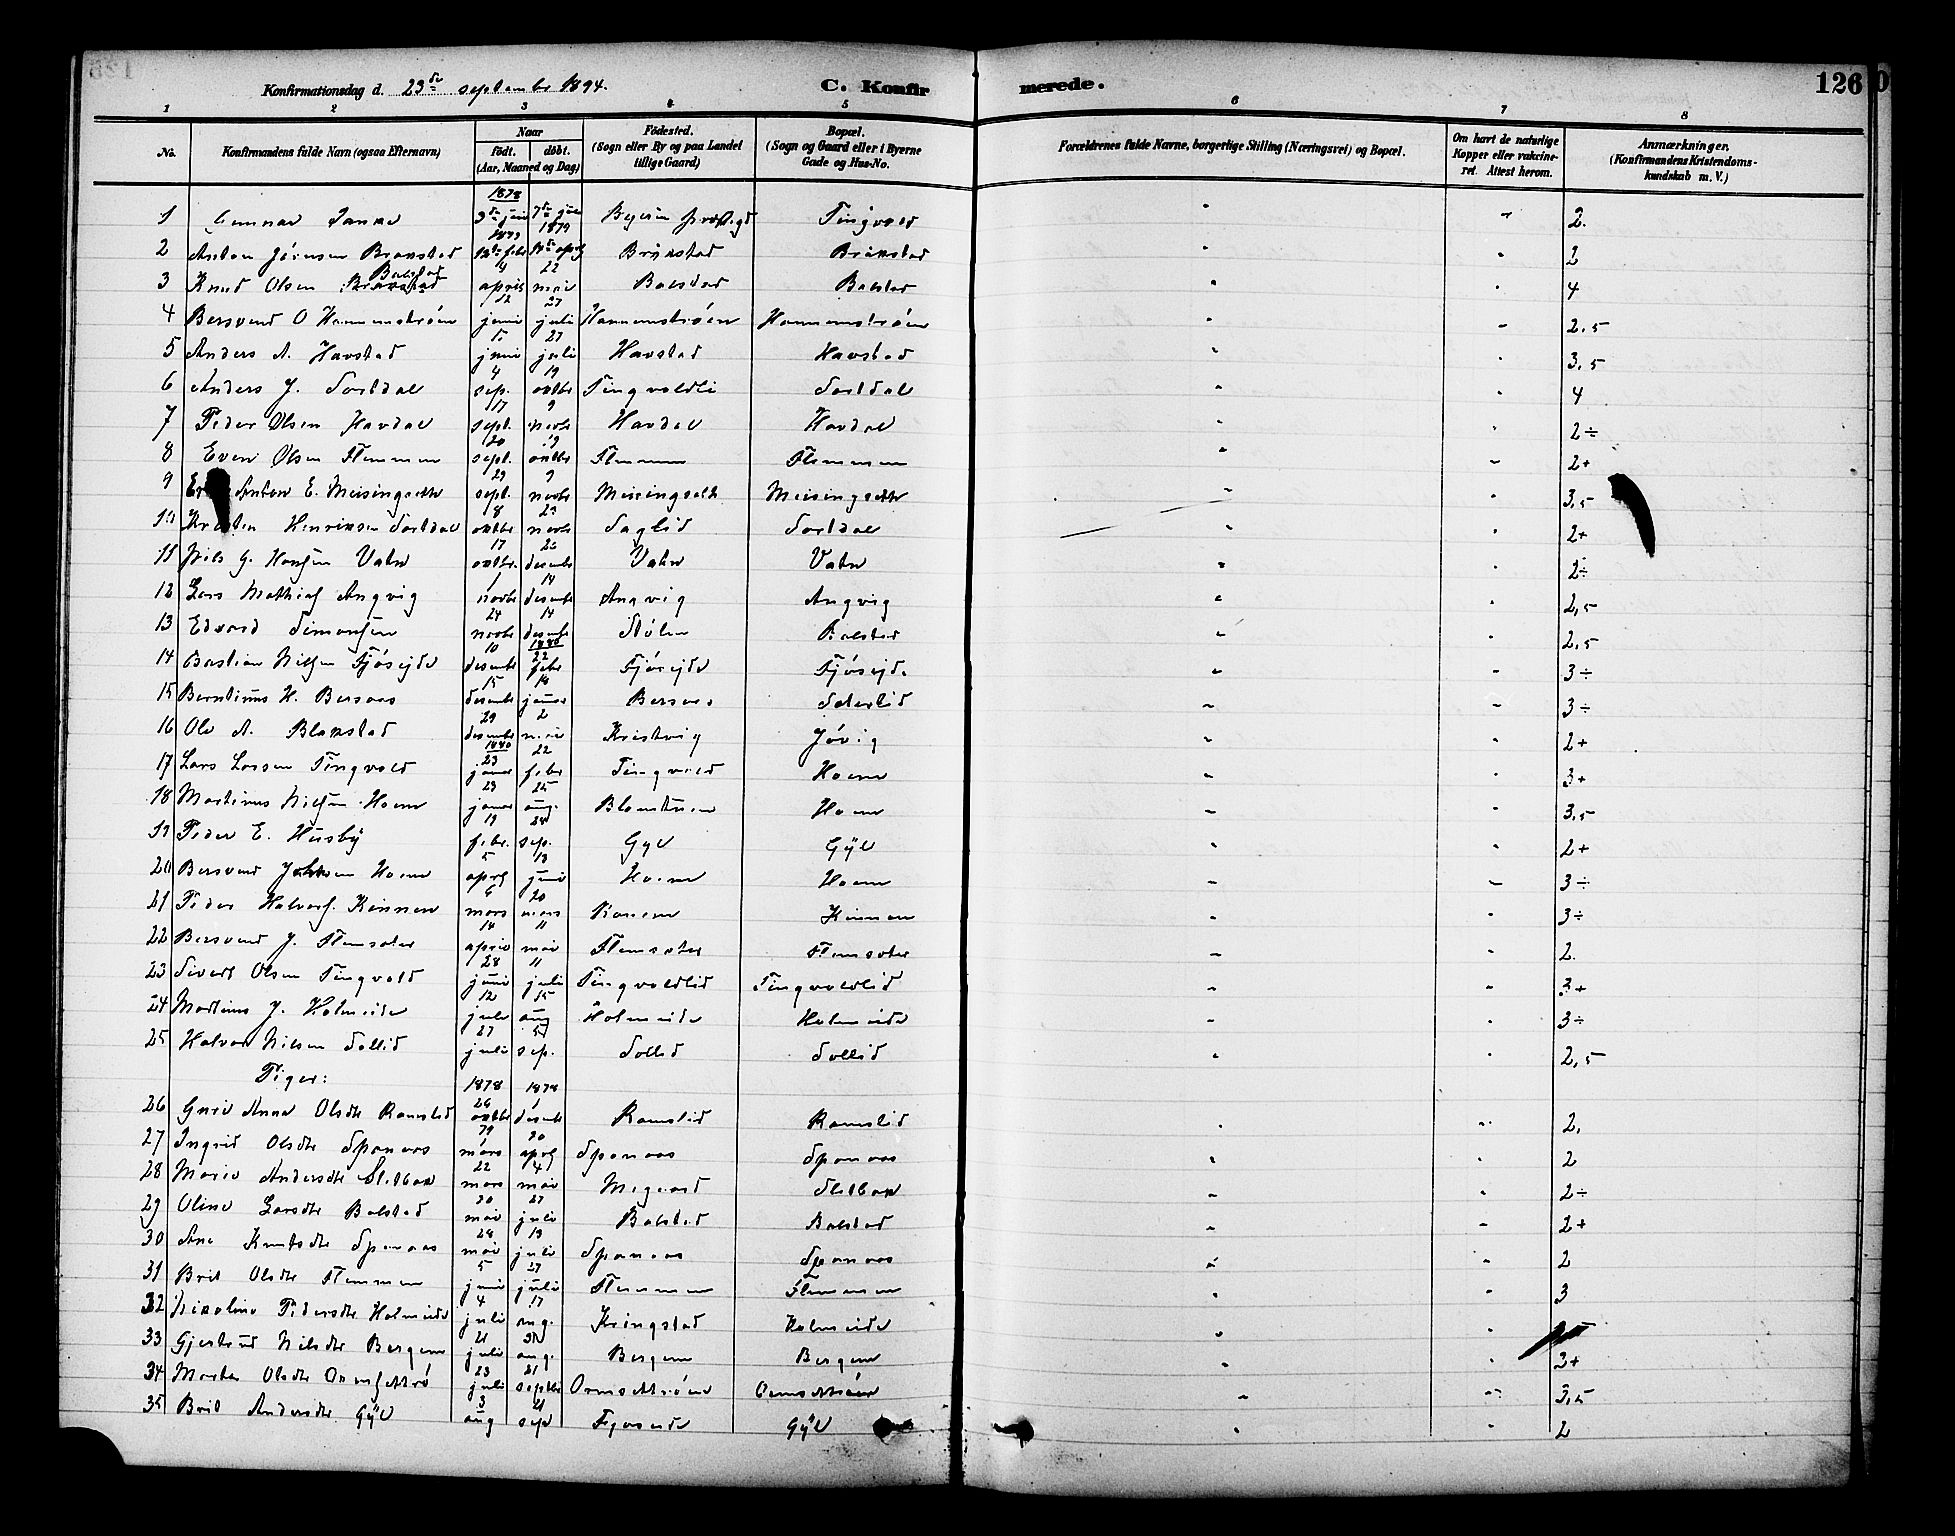 126
Konfirmationsdag d. 23de september 1894. C. Konfirmerede.
1 2 3 4 5 6 7 8
No. Konfirmandens fulde Navn (ogsaa Efternavn) Naar født. døbt. (Aar, Maaned og Dag) Fødested. (Sogn eller By og paa Landet tillige Gaard) Bopæl. (Sogn og Gaard eller i Byerne Gade og Hus-No. Forældrenes fulde Navne, borgerlige Stilling (Næringsvei) og Bopæl. Om havt de naturlige Kopper eller vakcineret. Attest herom. Anmærkninger. (Konfirmandens Kristendomskundskab m. V.)
1878
1 Gunnar 7de juli Tingvold 2.
1879 1879
2 Anton Brakstad febr april Brakstad Brakstad 2
3 Knud Olsen Balstad 4 april 22 mai Balstad Balstad 4
4 Bersvend O Hammenstrøen 12 juni 27 juli Hammenstrøen Hammenstrøen 2,5
5 Anders A. Havstad juni 27 juli Havstad Havstad 3,5
6 Anders J. Sortdal 4 sep. 19 oktbr Tingvoldli Sortdal 4
7 Peder Olsen Havdal 17 sept. 9 novbr Havdal Havdal 2÷
8 Even Olsen Flemmen 20 sept. 19 oktbr Flemmen Flemmen 2+
9 Anton E. Meisingseth 29 sept. 9 novbr Meisingseth Meisingseth 3,5
10 Kristen Henriksen Sortdal 8 oktbr 23 novbr Saglid Sortdal 2+
11 Nils G. Hansen Vatn 17 oktbr. 26 desembr Vatn Vatn 2÷
12 Lars Mathias Angvig 1 novbr 14 desembr Angvig Angvig 2,5
13 Edvard Simonsen 24 novbr 14 desembr Stølen Balstad 2,5
1880
14 Bastian Nilsen Fjøseide 10 desembr 22 febr Fjøseide Fjøseid. 3÷
15 Berntinus H. Bersaas 15 desembr 18 januar Bersaas Sæterlid 3÷
16 Ole A. Blakstad 29 desembr 2 mai Kristvig Jøvig 2+
1880
17 Lars Larsen Tingvold 23 januar 22 febr Tingvold Hoem 3+
18 Martinus Nilsen Hoem 23 januar 25 aug. Hoem 3,5
19 Peder E. Husby 19 febr. 24 sep. Gyl Gÿl 2+
20 Bersvend Johnsen Hoem 5 april 13 juni Hoem Hoem 3÷
21 Peder Halvors. Kinnen 6 mars 20 mars Kinnen 3÷
22 Bersvend J. Flemsæter 14 april 11 mai Flemsæter Flemsæter 2.
23 Sivert Olsen Tingvold 28 juni 11 juli Tingvoldlid Tingvoldlid 3+
24 Martinus J. Holmeide 12 juli 15 aug Holmeide Holmeide 3÷
25 Halvor Nilsen Sollid 27 juli 5 sep. Sollid Sollid 2,5
Piger: 1878 1878
26 Guri Anna Olsdtr Ramslid 26 oktbr 1 desembr Ramslid Ramslid 2.
27 Ingrid Olsdtr Spanaas 79 1 mars 20 april Spanaas Spanaas 2
28 Marie Andersdtr Sletbak 22 mars 4 mai Megaard Sletbak 2÷
29 Oline Larsdtr Balstad 20 mai 27 juli Balstad Balstad 2+
30 Ane Knutsdtr Spanaas 28 mai 13 juli Spanaas Spanaas 2
31 Brit Olsdtr Flemmen 5 juni 27 juli Flemmen Flemmen 3
32 Nikoline Pedersdtr Holmeide 4 juli 17 aug. Kringstad Holmeide
33 Gjertrud Nilsdtr Bergem 21 juli 31 aug. Bergem Bergem 2+
34 Marta Olsdtr Ormsettrø 23 juli 21 septbr Ormsettrøen Ormsettrøen 3,5
35 Brit Andersdtr Gÿl 3 aug 21 sep Fjøseide Gÿl 2